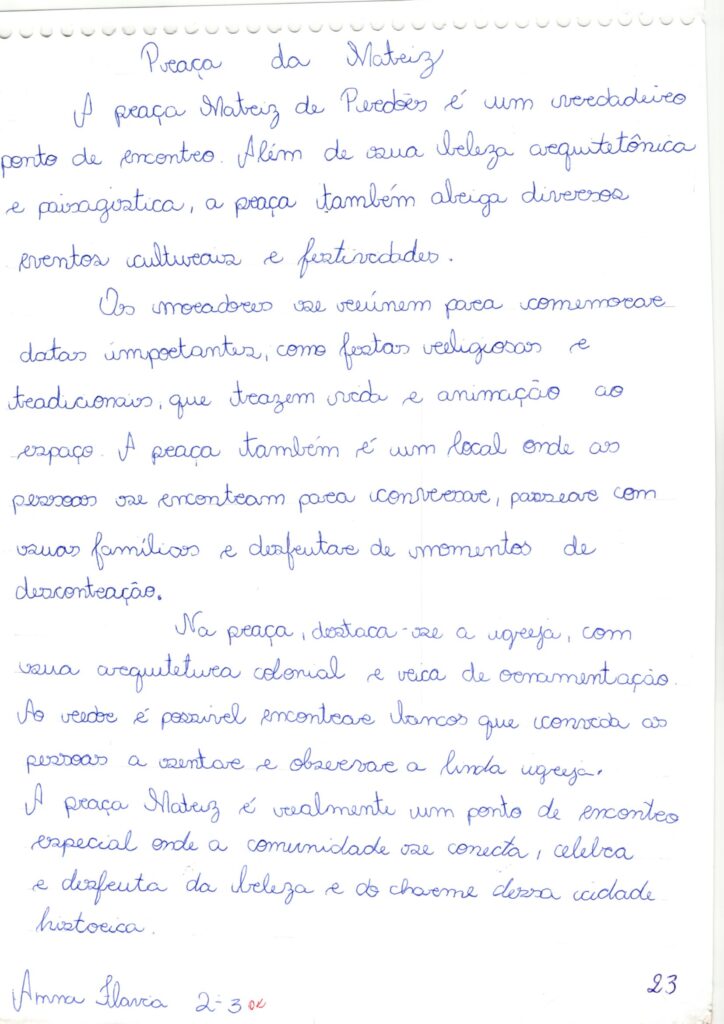 Praça da Matriz
A praça Matriz de Perdões é um verdadeiro
ponto de encontro. Além de sua beleza arquitetônica
e paisagistica, a praça também abriga diversos
eventos culturais e festividades.
Os moradores se reúnem para comemorar
datas importantes, como festas religiosas e
tradicionais, que trazem vida e animação ao
espaço. A praça também é um local onde as
pessoas se encontram para conversar, passear com
suas famílias e desfrutar de momentos de
descontração.
Na praça, destaca-se a igreja, com
sua arquitetura colonial e rica de ornamentação.
Ao redor é possivel encontrar bancos que convida as
pessoas a sentar e observar a linda igreja.
A praça Matriz é realmente um ponto de encontro
especial onde a comunidade se conecta, celebra
e desfruta da beleza e do charme dessa cidade
historica.
Anna Flavia 2-3 ok
23